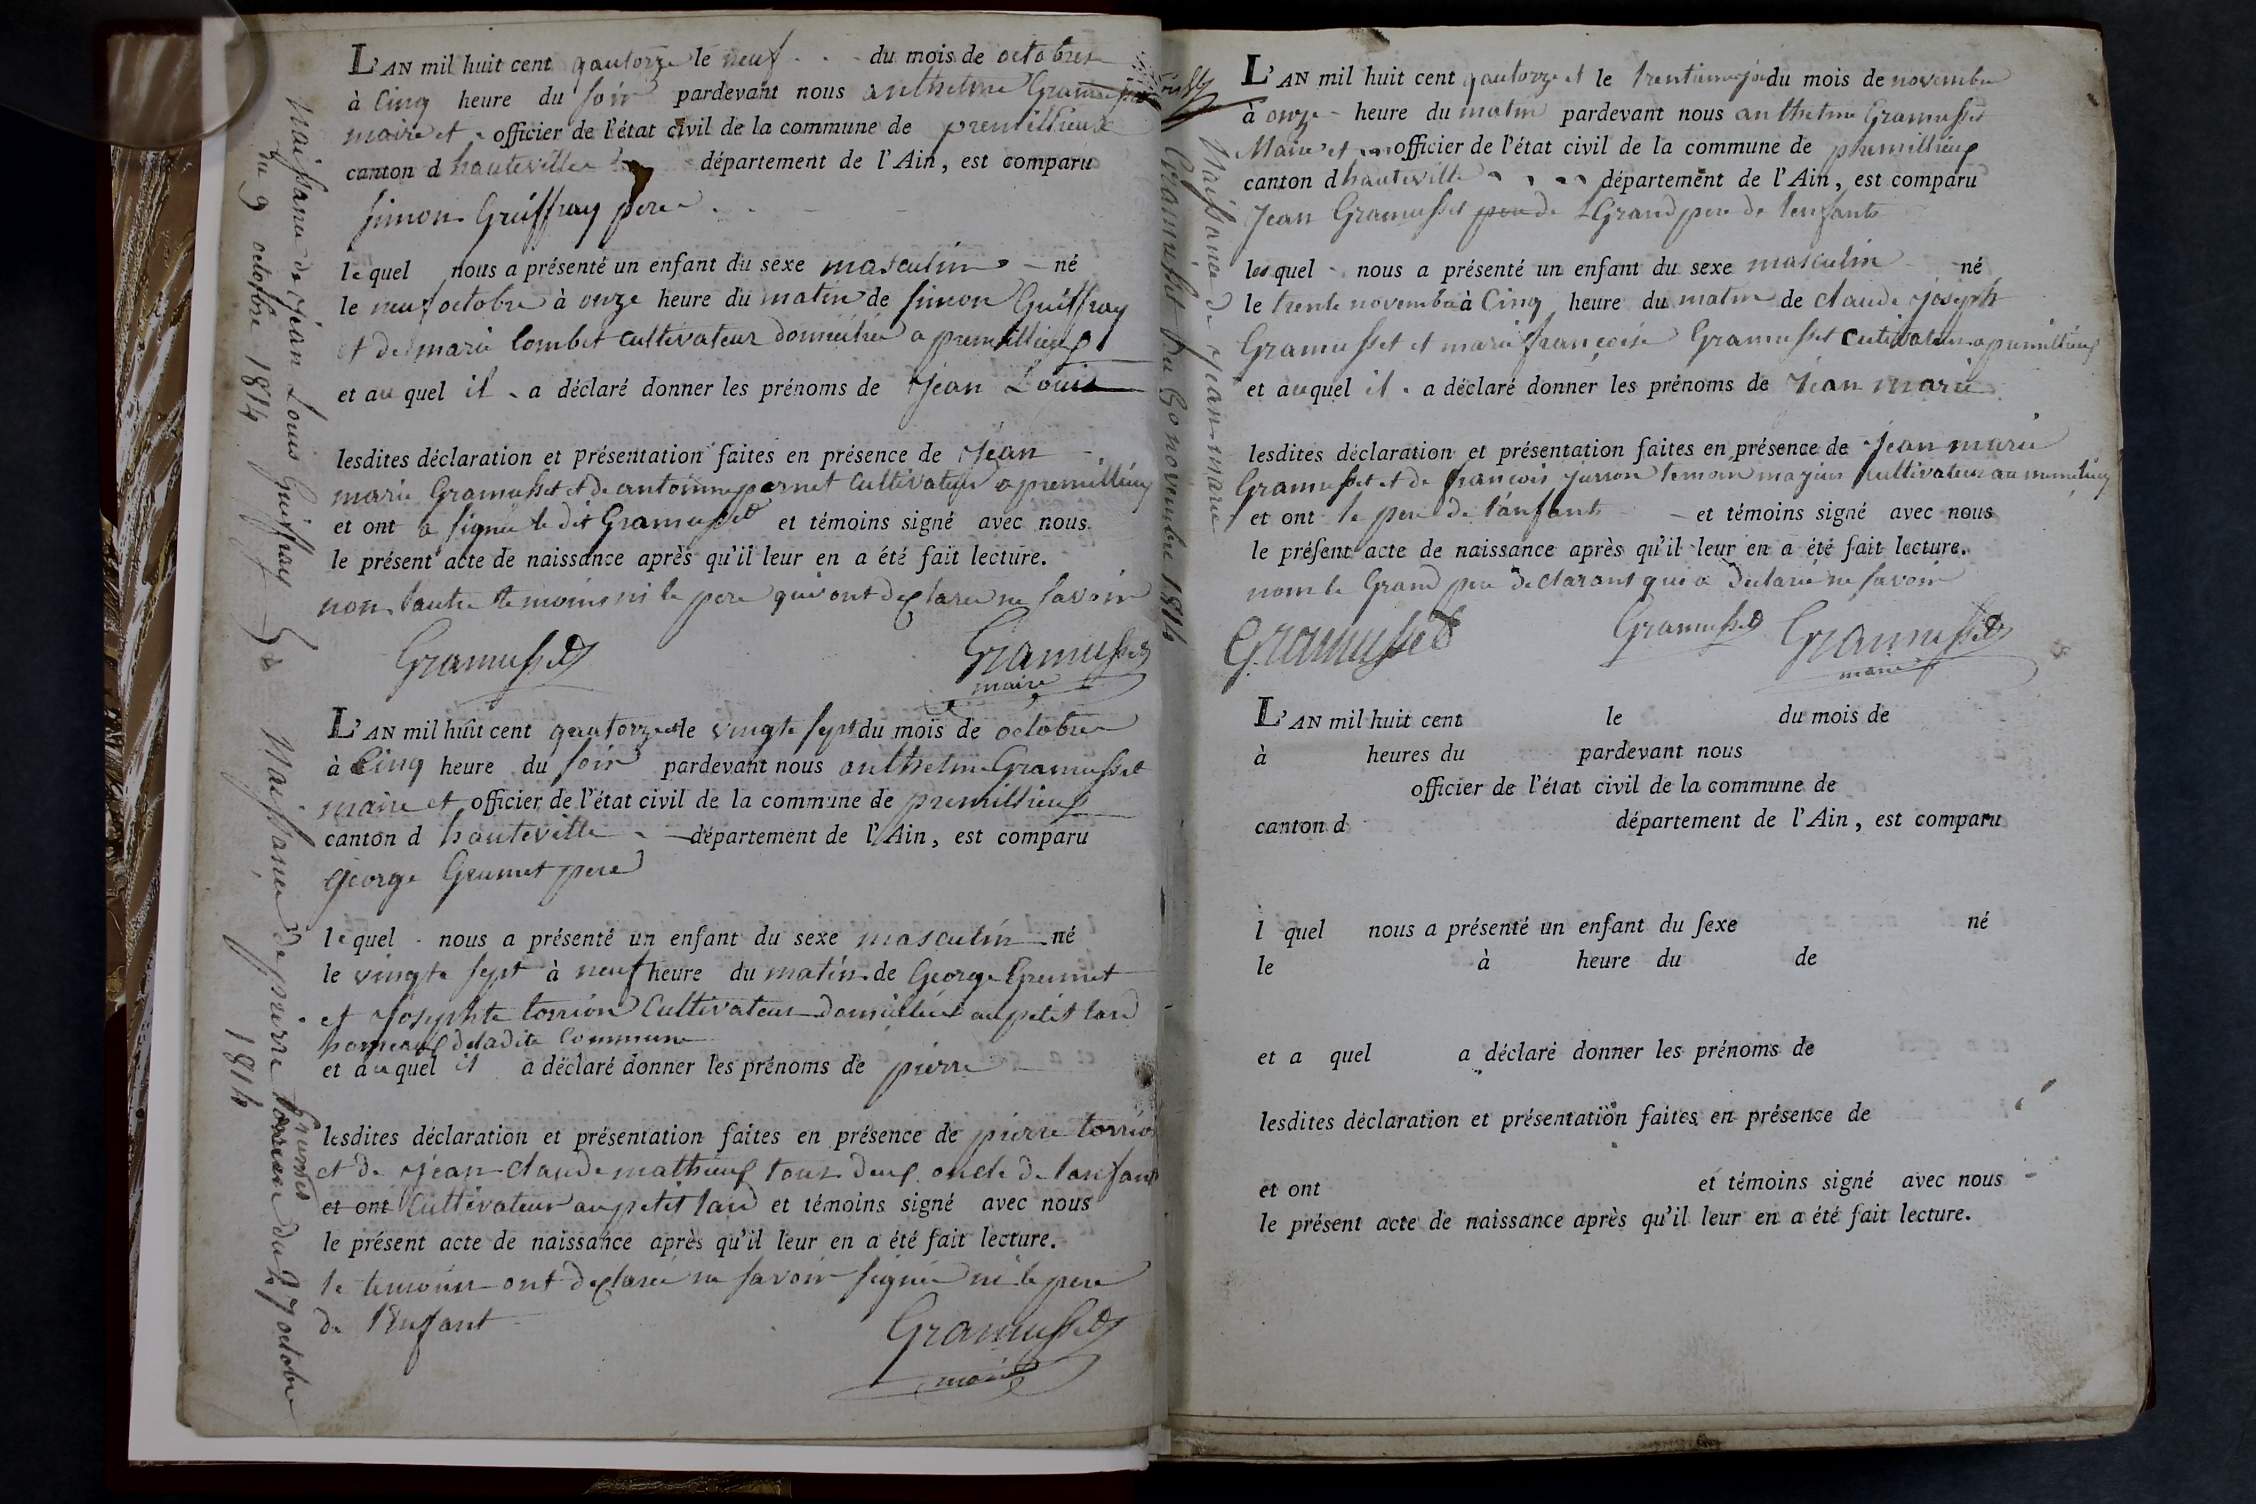 Naissance de Jean Louis Guiffray
du 9 octobre 1814
L'AN mil huit cent quatorze le neuf du mois de octobre
à Cinq heure du soir pardevant nous anthelme Gramusset
maire et officier de l'état civil de la commune de premillieux
canton d hauteville département de l'Ain, est comparu
Simon Guiffray pere
le quel nous a présenté un enfant du sexe masculin né
le neuf octobre à onze heure du matin de Simon Guiffray
et de marie Combet cultivateur domiciliée a premillieux
et au quel il a déclaré donner les prénoms de Jean Louis
lesdites déclaration et présentation faites en présence de Jean
marie Gramusset et de antoinne pernet Cultivateur a premillieux
et ont a signée le dit Gramusset et témoins signé avec nous
le présent acte de naissance après qu'il leur en a été fait lecture.
non lautre temoins ni le pere qui ont declarée ne Savoir
Gramusset Gramusset
maire
Naissance de pierre Grumet du 27 octobre
1814
L'AN mil huit cent quatorze et le vingte sept du mois de octobre
à Cinq heure du soir pardevant nous anthelme Gramusset
maire et officier de l'état civil de la commune de premillieux
canton d hauteville département de l'Ain, est comparu
George Grumet pere
le quel nous a présenté un enfant du sexe masculin né
le vingte sept à neuf heure du matin de George Grumet
et Josephte torrion Cultivateur domiciliée au petit lard
hameaux de la dite Commune
et au quel il a déclaré donner les prénoms de pierre
lesdites déclaration et présentation faites en présence de pierre torrion
et de Jean claude mathieux tour deux oncle de lanfant
et ont Cultivateur au petit lard et témoins signé avec nous
le présent acte de naissance après qu'il leur en a été fait lecture.
le temoins ont declarée ne savoir signée ni le pere
de l'Enfant
Gramusset
maire
Naissance de Jean marie
Gramusset du 30 novembre 1814
L'AN mil huit cent quatorze et le trentieme jour du mois de novembre
à onze heure du matin pardevant nous anthelme Gramusset
Maire et officier de l'état civil de la commune de premillieux
canton d hauteville département de l'Ain, est comparu
Jean Gramusset pere de Grand pere de lenfant
le quel nous a présenté un enfant du sexe masculin né
le trente novembre à Cinq heure du matin de claude Joseph
Gramusset et marie françoise Gramusset cultivateur a premillieux
et au quel il a déclaré donner les prénoms de Jean marie
lesdites déclaration et présentation faites en présence de Jean marie
Gramusset et de francois temoin majeur cultivateur
et ont le pere de l'anfant et témoins signé avec nous
le présent acte de naissance après qu'il leur en a été fait lecture.
nom le Grand pere declarant qui a declarée ne savoir
Gramusset Gramusset Gramusset
maire
L'AN mil huit cent le du mois de
à heures du pardevant nous
officier de l'état civil de la commune de
canton d département de l'Ain, est comparu
l quel nous a présenté un enfant du sexe né
le à heure du de
et a quel a déclaré donner les prénoms de
lesdites déclaration et présentation faites en présence de
et ont et témoins signé avec nous
le présent acte de naissance après qu'il leur en a été fait lecture.